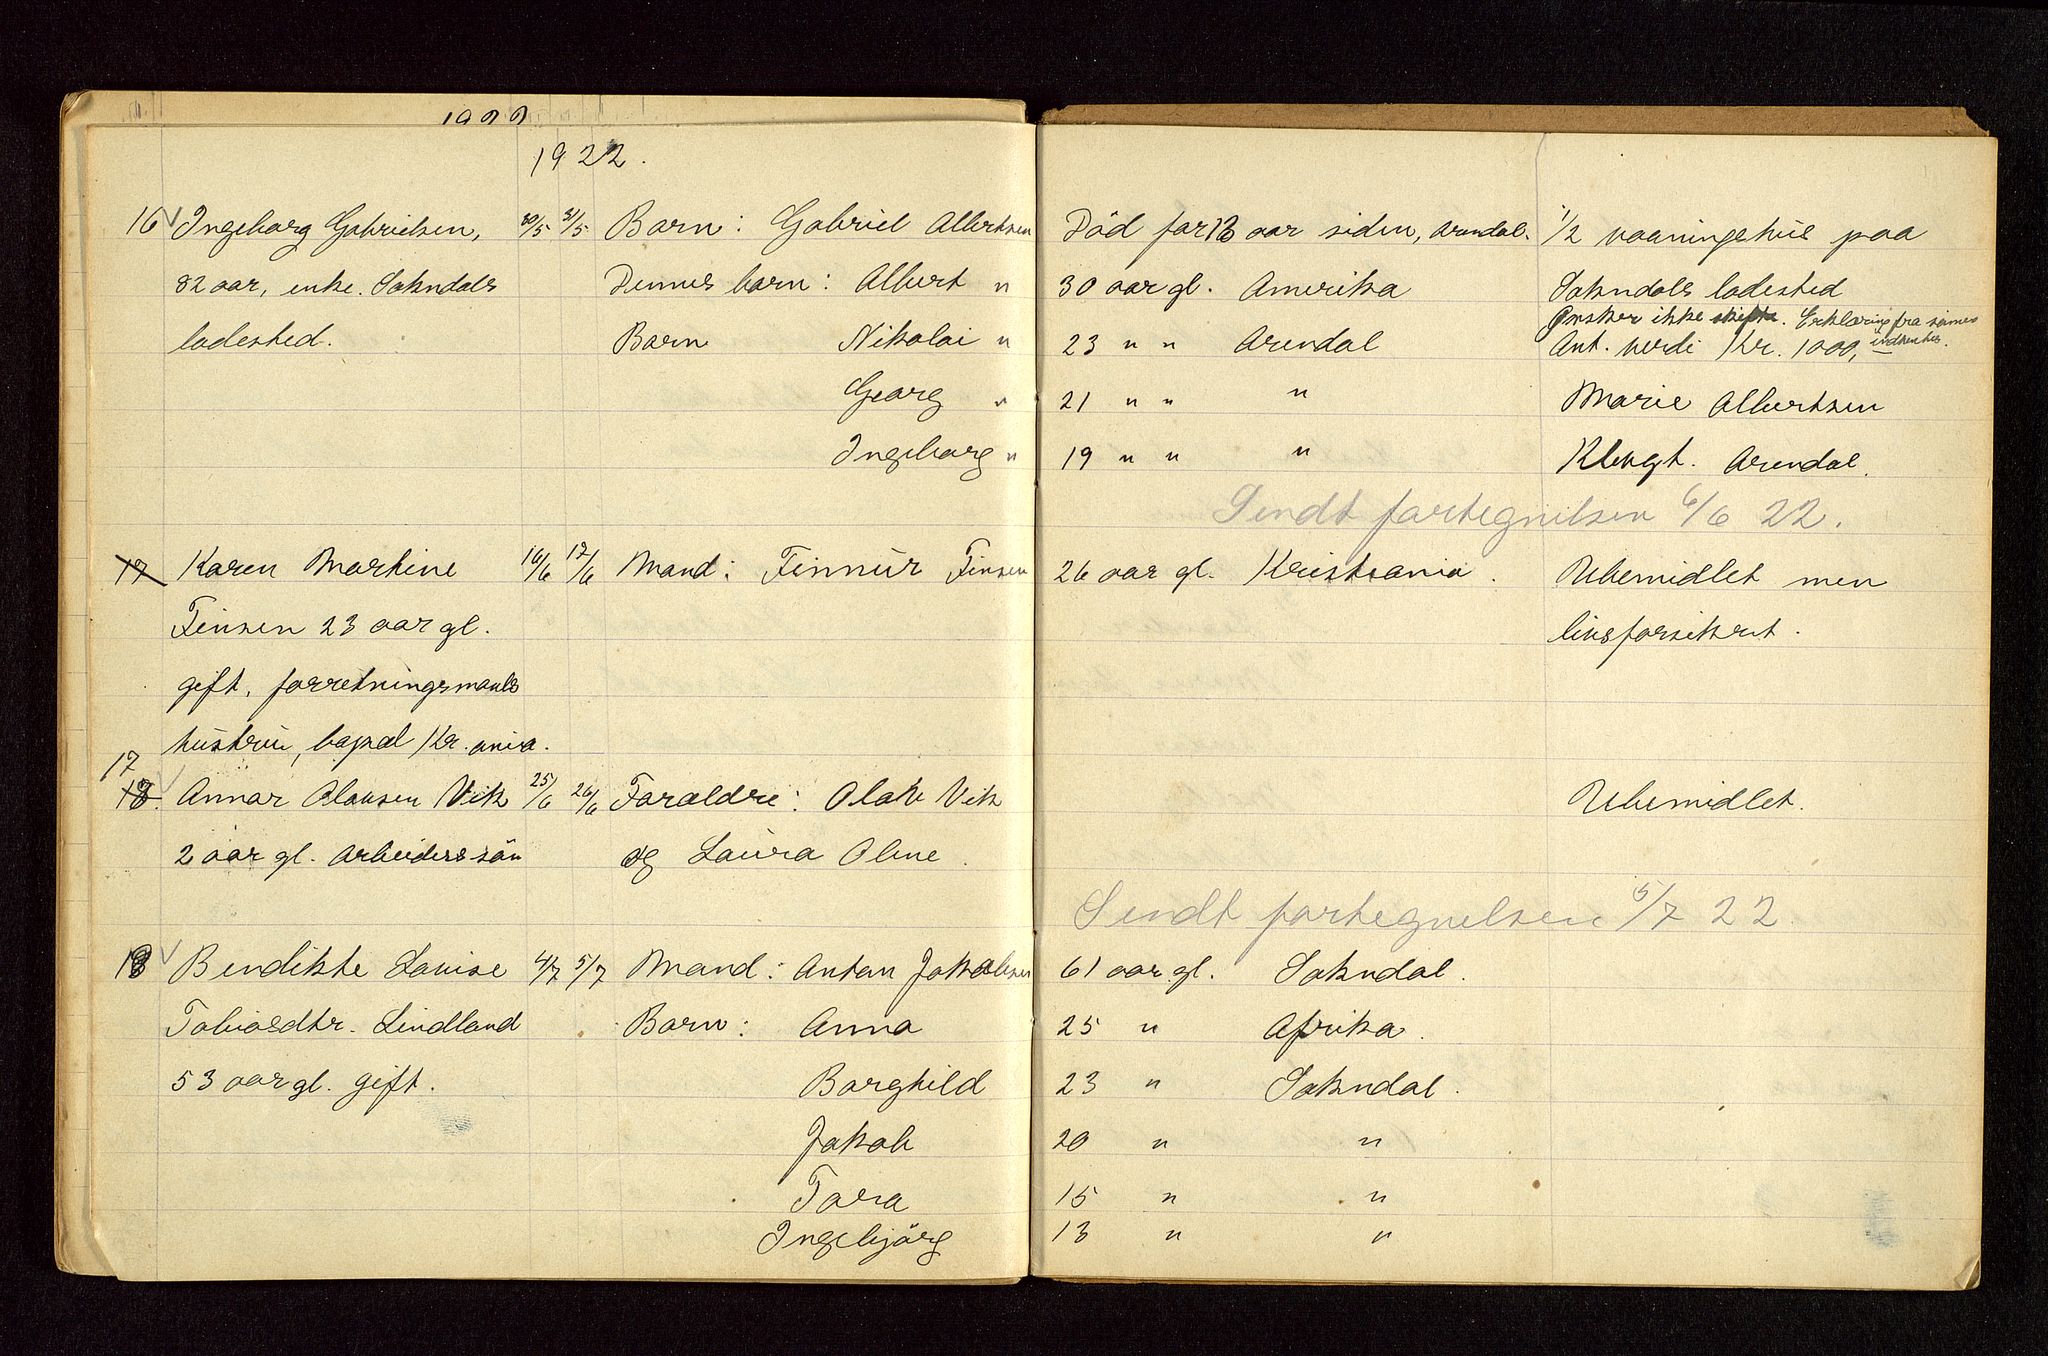 1922
1922.
16 Ingeborg Gabrielsen, 30/5 31/5 Barn: Gabriel Albertsen Död for 13 aar siden, Arendal. 1/2 vaaningshus paa
82 aar, enke. Sokndals Dennes barn: Albert " 30 aar gl. Amerika Sokndals ladested
Ønsker ikke skifte. Erklæring fra sønnes
ladested. Barn Nikolai " 23 " " Arendal Ant. verdi Kr. 1000,— indhentes.
Georg " 21 " " " Marie Albertsen
Ingeborg " 19 " " " Arendal.
Sendt fortegnelsen 6/6 22.
17 Karen Martine 16/6 17/6 Mand: Finnur Finsen 26 aar gl. Kristiania. Ubemidlet men
Finsen 23 aar gl. livsforsikret.
gift, forretningsmands
hustru, bopæl Kr.ania.
17
18. Annar Olavsen Vik 25/6 26/6 Forældre: Olav Vik Ubemidlet.
2 aar gl. Arbeiderssön og Laura Oline.
Sendt fortegnelsen 5/7 22.
18 Bendikte Louise 4/7 5/7 Mand: Anton Jakobsen 61 aar gl. Sokndal.
Tobiasdtr. Lindland Barn: Anna 25 " Afrika.
53 aar gl. gift. Borghild 23 " Sokndal.
Jakob 20 " "
Tora 15 " "
Ingebjörg 13 " "